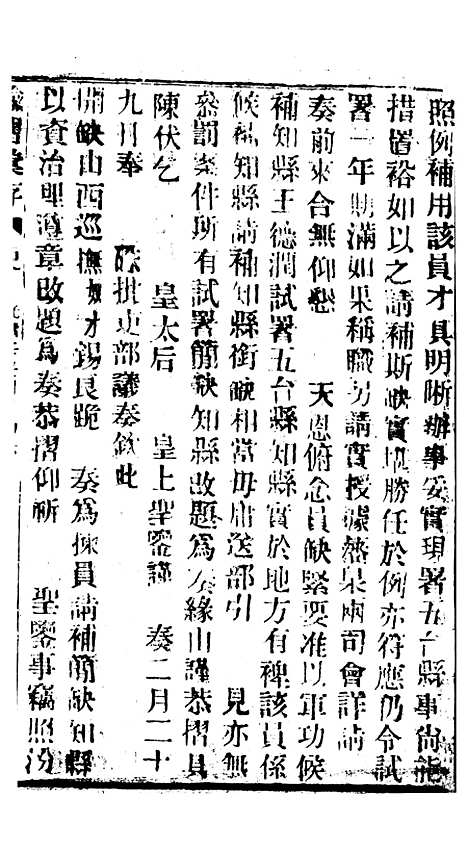 照例補用該員才具明晰辦事妥實現署五台縣事尚能
措置裕如以之請補斯缺實堪勝任於例亦符應仍令試
署一年期滿如果稱職另請實授據藩臬兩司會詳請
奏前來合無仰懇　天恩俯念員缺緊要准以軍功候
補知縣王德潤試署五台縣知縣實於地方有裨該員係
候補知縣請補知縣銜缺相當毋庸送部引　見亦無
參罰案件所有試署簡缺知縣改題為奏緣由謹恭摺具
陳伏乞　皇太后　皇上聖鑒謹　奏二月二十
九日奉　硃批吏部議奏欽此
開缺山西巡撫奴才錫良跪　奏為揀員請補簡缺知縣
以資治理遵章改題為奏恭摺仰祈　聖鑒事竊照汾